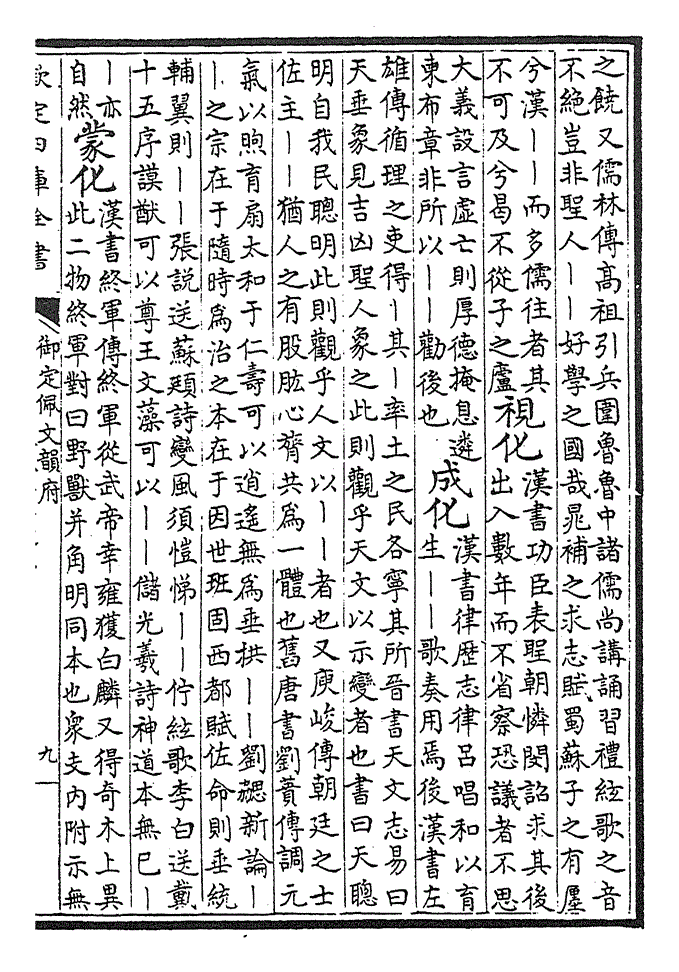 之饒又儒林傳高祖引兵圍魯魯中諸儒尚講誦習禮絃歌之音
不絕豈非聖人——好學之國哉晁補之求志賦蜀蘇子之有廛
兮漢——而多儒往者其
不可及兮曷不從子之廬
視化
漢書功臣表聖朝憐閔詔求其後
出入數年而不省察恐議者不思
大義設言虛亡則厚德掩息遴
柬布章非所以——勸後也
成化
漢書律歴志律呂唱和以育
生——歌奏用焉後漢書左
雄傳循理之吏得—其—率土之民各寧其所晉書天文志易曰
天垂象見吉凶聖人象之此則觀乎天文以示變者也書曰天聰
明自我民聰明此則觀乎人文以——者也又庾峻傳朝廷之士
佐主——猶人之有股肱心膂共爲一體也舊唐書劉蕡傳調元
氣以煦育扇太和于仁壽可以逍遙無爲垂拱——劉勰新論—
—之宗在于隨時爲治之本在于因世班固西都賦佐命則垂統
輔翼則——張說送蘇頲詩變風須愷悌——佇絃歌李白送戴
十五序謨猷可以尊王文藻可以——儲光羲詩神道本無已—
—亦
自然
蒙化
漢書終軍傳終軍從武帝幸雍獲白麟又得奇木上異
此二物終軍對曰野獸并角明同本也衆支內附示無
欽定四庫全書
御定佩文韻府
九